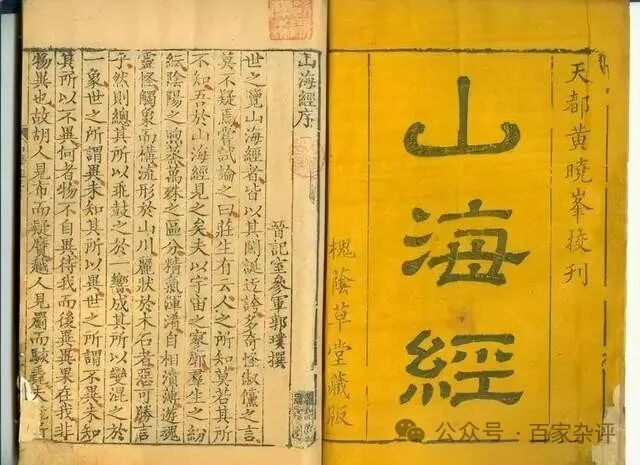 天都黃曉峯挍刊
山海經
槐蔭草堂藏版
山海經序
晉記室參軍郭璞撰
世之覽山海經者皆以其閎誕迂誇多奇怪俶儻之言
莫不疑焉嘗試論之曰莊生有云人之所知莫若其所
不知吾於山海經見之矣夫以宇宙之寥廓羣生之紛
紜陰陽之煦蒸萬殊之區分精氣渾淆自相濆薄遊魂
靈怪觸象而構流形於山川麗狀於木石者惡可勝言
乎然則總其所以乖鼓之於 嚮成其所以變混之於
一象世之所謂異未知其所以異世之所謂不異未知
其所以不異何者物不自異待我而後異異果在我非
物異也故胡人見布而疑黂越人見罽而駭毳夫 所
公众号·百家杂评